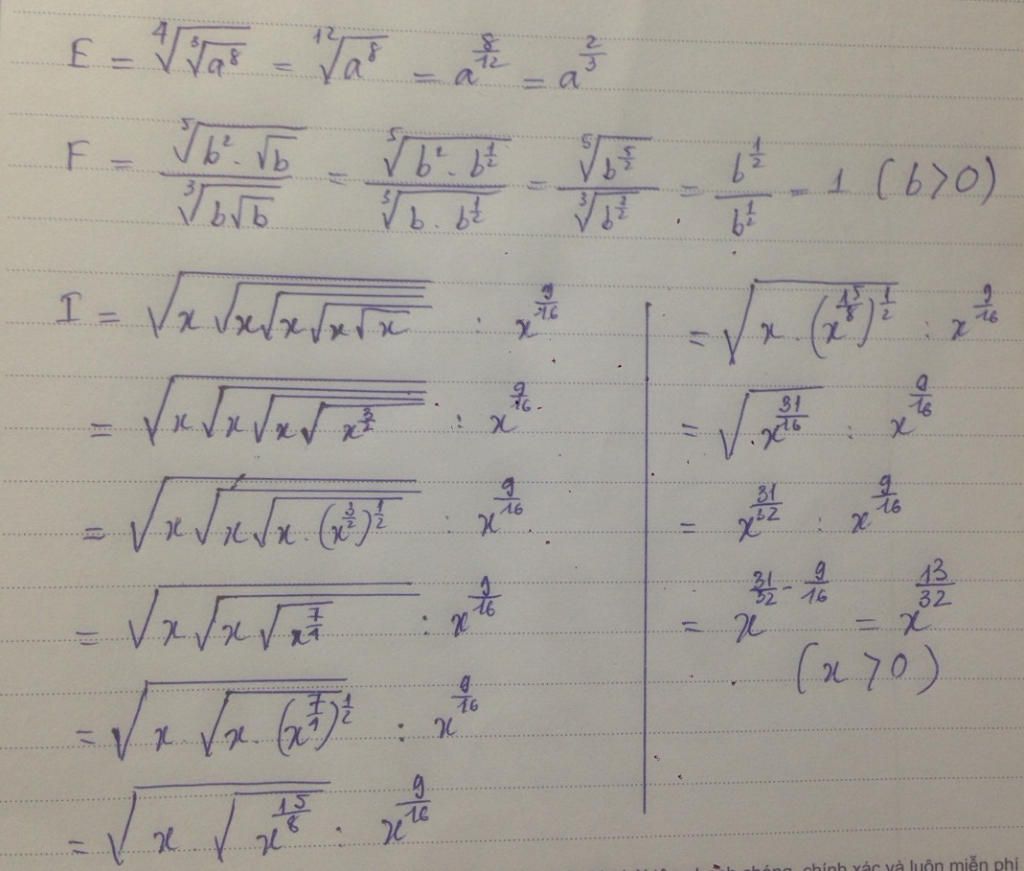 E = ⁴√(³√(a⁸)) = ¹²√(a⁸) = a^(8/12) = a^(2/3)
F = ⁵√(b² . √b) / ³√(b√b) = ⁵√(b² . b^(1/2)) / ³√(b . b^(1/2)) = ⁵√(b^(5/2)) / ³√(b^(3/2)) = b^(1/2) / b^(1/2) = 1 (b > 0)
I = √(x√(x√(x√(x√x)))) : x^(9/16)
= √(x√(x√(x√(x^(3/2))))) : x^(9/16)
= √(x√(x√(x . (x^(3/2))^(1/2)))) : x^(9/16)
= √(x√(x√(x^(7/4)))) : x^(9/16)
= √(x . √(x . (x^(7/4))^(1/2))) : x^(9/16)
= √(x . √(x^(15/8))) : x^(9/16)
= √(x . (x^(15/8))^(1/2)) : x^(9/16)
= √(x^(31/16)) : x^(9/16)
= x^(31/32) : x^(9/16)
= x^(31/32 - 9/16) = x^(13/32)
(x > 0)
chính xác và luôn miễn phí